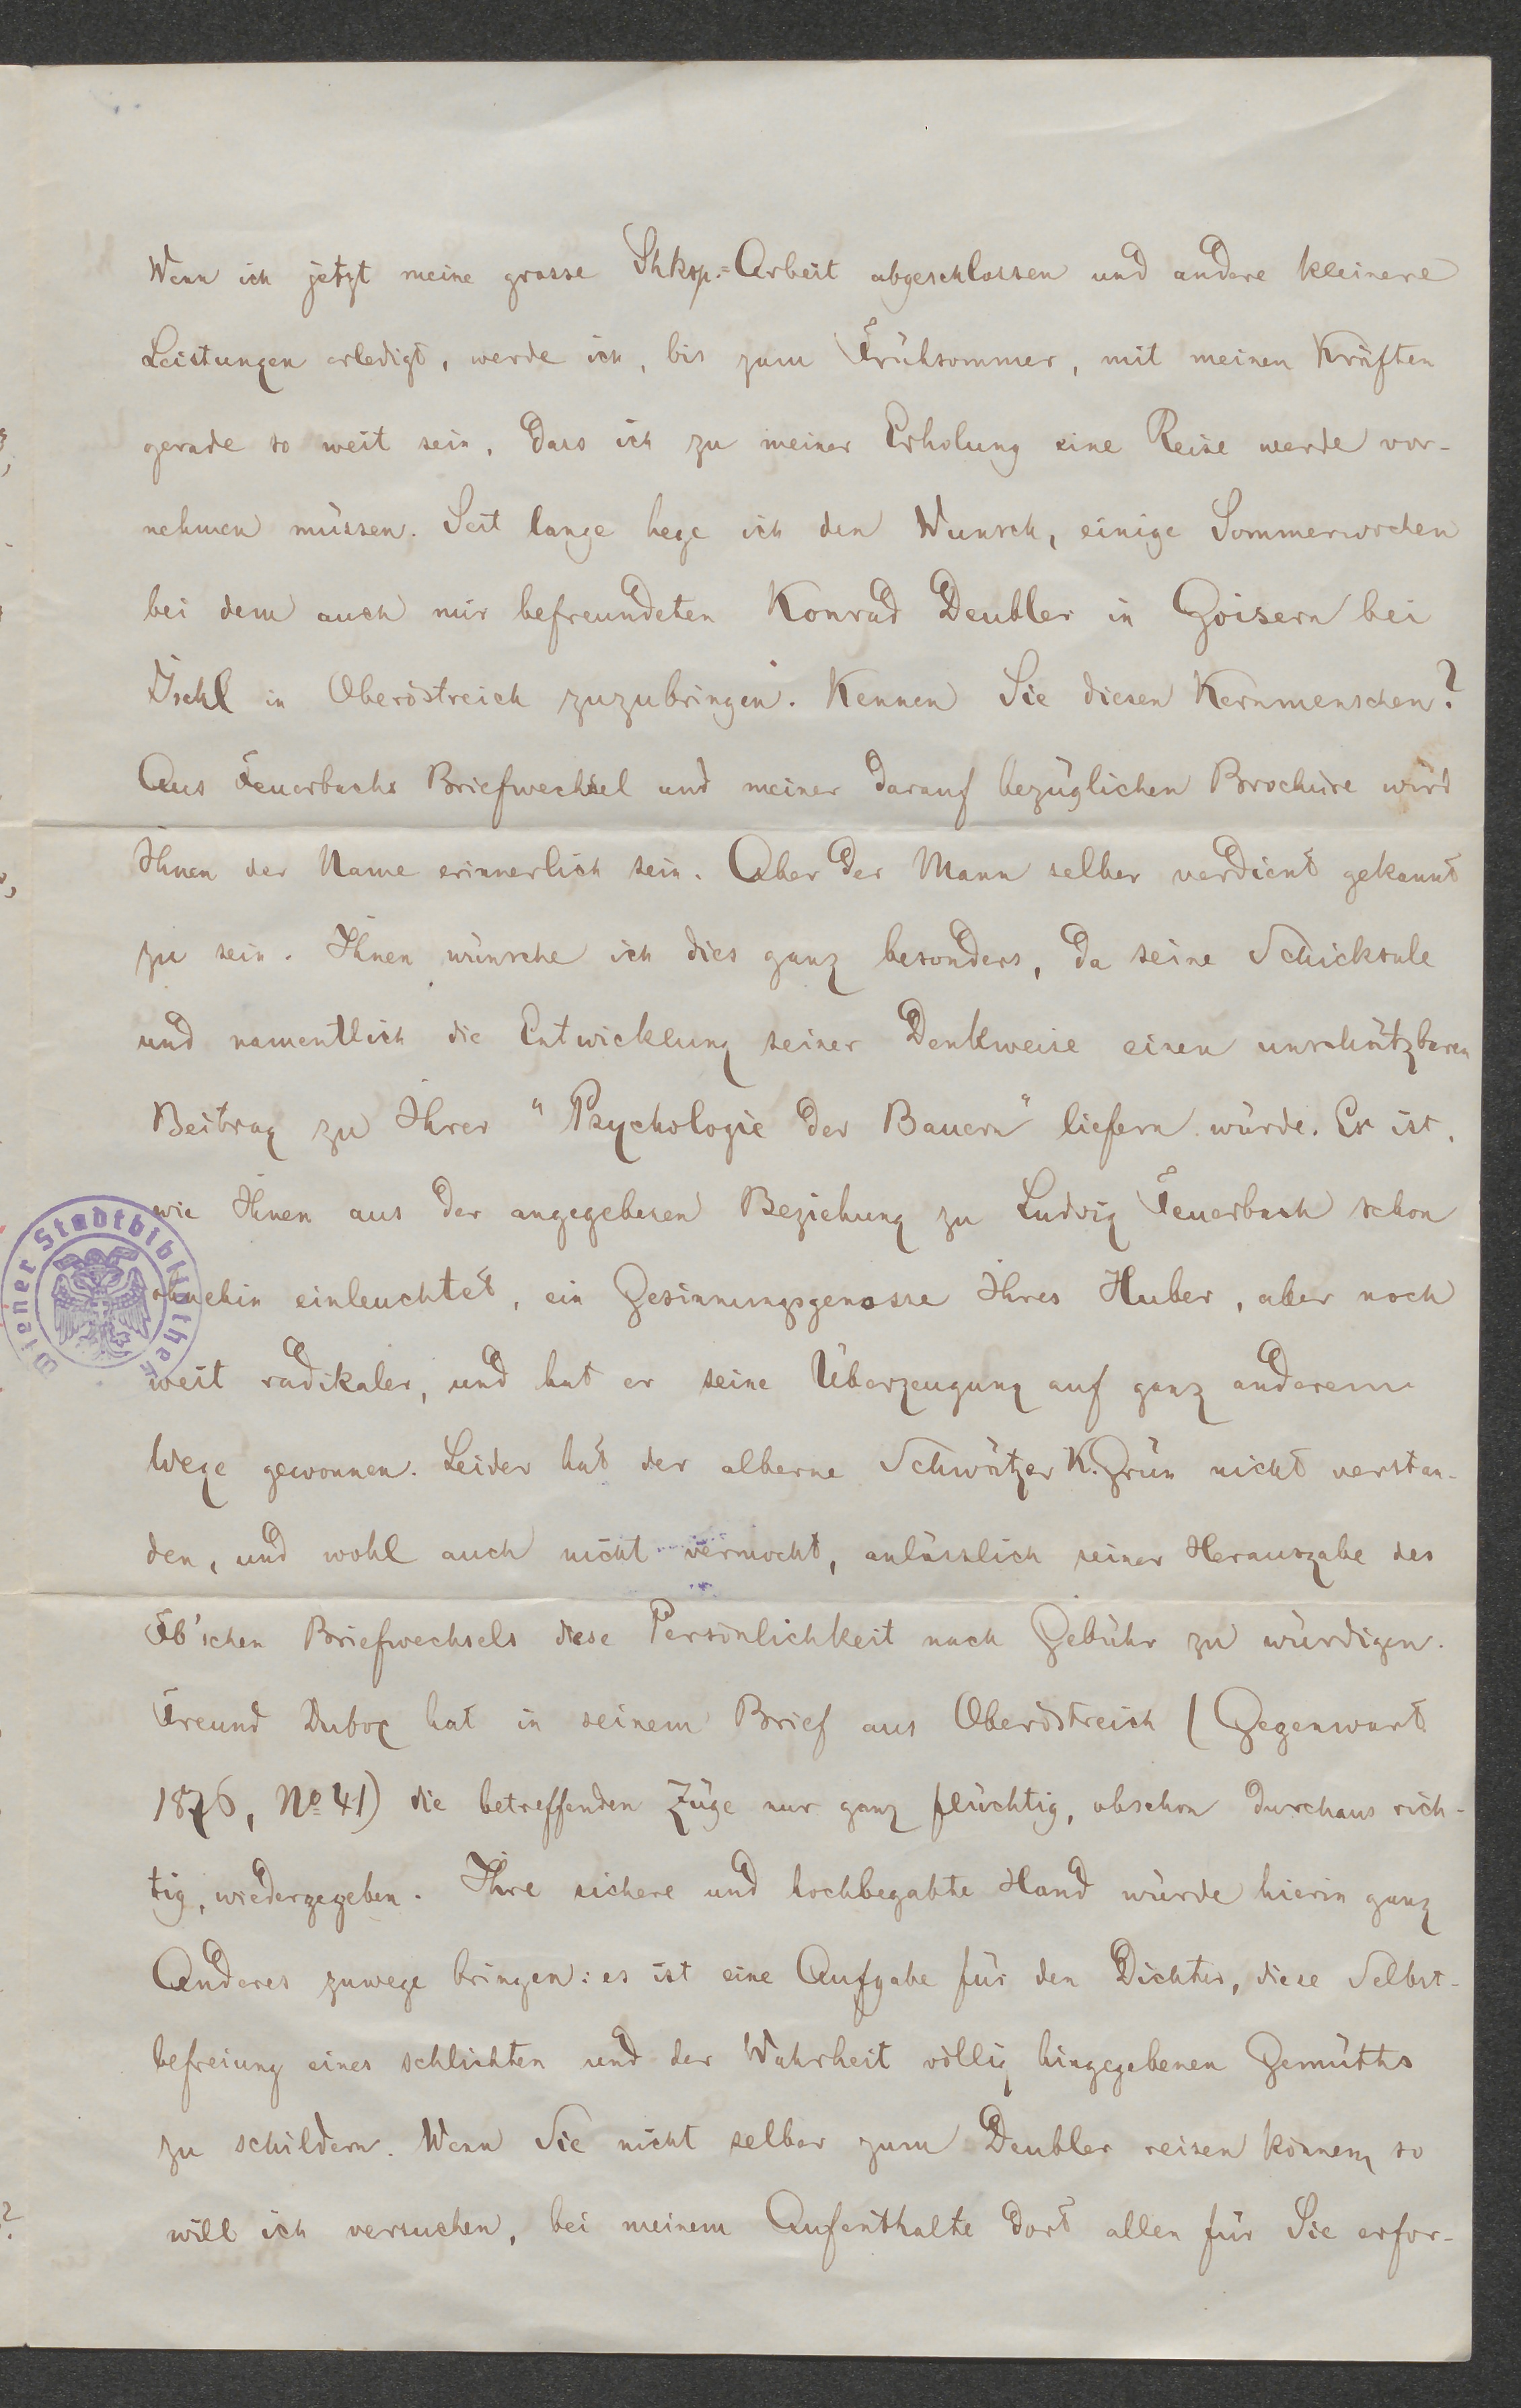 Wenn ich jetzt meine grosse Shksp.=Arbeit abgeschlossen und andere kleinere
Leistungen erledigt, werde ich, bis zum Frühsommer, mit meinen Kräften
gerade so weit sein, dass ich zu meiner Erholung eine Reise werde vor-
nehmen müssen. Seit lange hege ich den Wunsch, einige Sommerwochen
bei dem auch mir befreundeten Konrad Deubler in Goisern bei
Ischl in Oberöstreich zuzubringen. Kennen Sie diesen Kernmenschen?
Aus Feuerbachs Briefwechsel und meiner darauf bezüglichen Brochüre wird
Ihnen der Name erinnerlich sein. Aber der Mann selber verdient gekannt
zu sein. Ihnen wünsche ich dies ganz besonders, da seine Schicksale
und namentlich die Entwicklung seiner Denkweise einen unschätzbaren
Beitrag zu Ihrer "Psychologie der Bauern" liefern würde. Er ist,
wie Ihnen aus der angegebenen Beziehung zu Ludwig Feuerbach schon
ohnehin einleuchtet, ein Gesinnungsgenosse Ihres Huber, aber noch
weit radikaler, und hat er seine Überzeugung auf ganz anderem
Wege gewonnen. Leider hat der alberne Schwätzer K. Grün nicht verstan-
den, und wohl auch nicht vermocht, anlässlich seiner Herausgabe des
Fb'schen Briefwechsels diese Persönlichkeit nach Gebühr zu würdigen.
Freund Duboc hat in seinem Brief aus Oberöstreich (Gegenwart
1876, No 41) die betreffenden Züge nur ganz flüchtig, obschon durchaus rich-
tig, wiedergegeben. Ihre sichere und hochbegabte Hand würde hierin ganz
Anderes zuwege bringen: es ist eine Aufgabe für den Dichter, diese Selbst-
befreiung eines schlichten und der Wahrheit völlig hingegebenen Gemüths
zu schildern. Wenn Sie nicht selber zum Deubler reisen können, so
will ich versuchen, bei meinem Aufenthalte dort allen für Sie erfor-
Wiener Stadtbibliothek